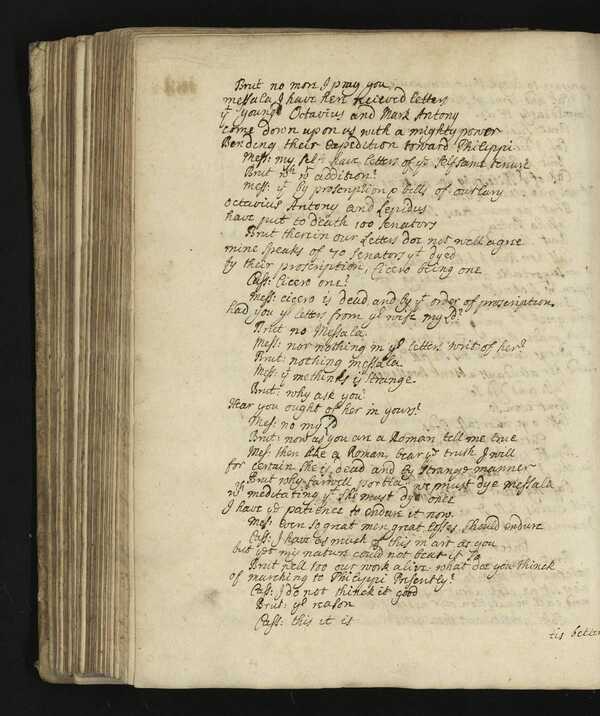 Brut no more I pray you
messala I have here recieved letters
yt young Octavius and Mark Antony
come down upon us with a mighty power
Bending their Expedition toward Philippi
Mess: my self have letters of ye selfsame tenure
Brut wth wt addition?
mess: yt by proscription & bills of outlary
octavius Antony and Lepidus
have put to death 100 senators
Brut therein our Letters doe not well agree
mine speaks of 70 senators yt dyed
by their proscription, Cicero being one
Cass: Cicero one?
Mess: cicero is dead and by yt order of proscription
had you yr letters from yr wife my Ld?
Brut no Messala.
Mess: nor nothing in yr letters writ of her?
Brut: nothing messala
Mess: yt methinks is strange.
Brut: why ask you
Hear you ought of her in yours?
Mess: no my Ld
Brut: now as you are a Roman tell me true
Mess: then like a Roman, bear ye truth I will
for certain she is dead and by strange manner
Brut why farwell portia, we must dye messala
wth meditating yt she must dye once
I have ye patience to endure it now.
Mess: even so great men great losses should endure
Cass: I have as much of this in art as you
but yet my nature could not bear it so
Brut well too our work alive. what doe you thinck
of marching to Philippi presently?
Cass: I do not thinck it good
Brut: yr reason
Cass: this it is
tis better